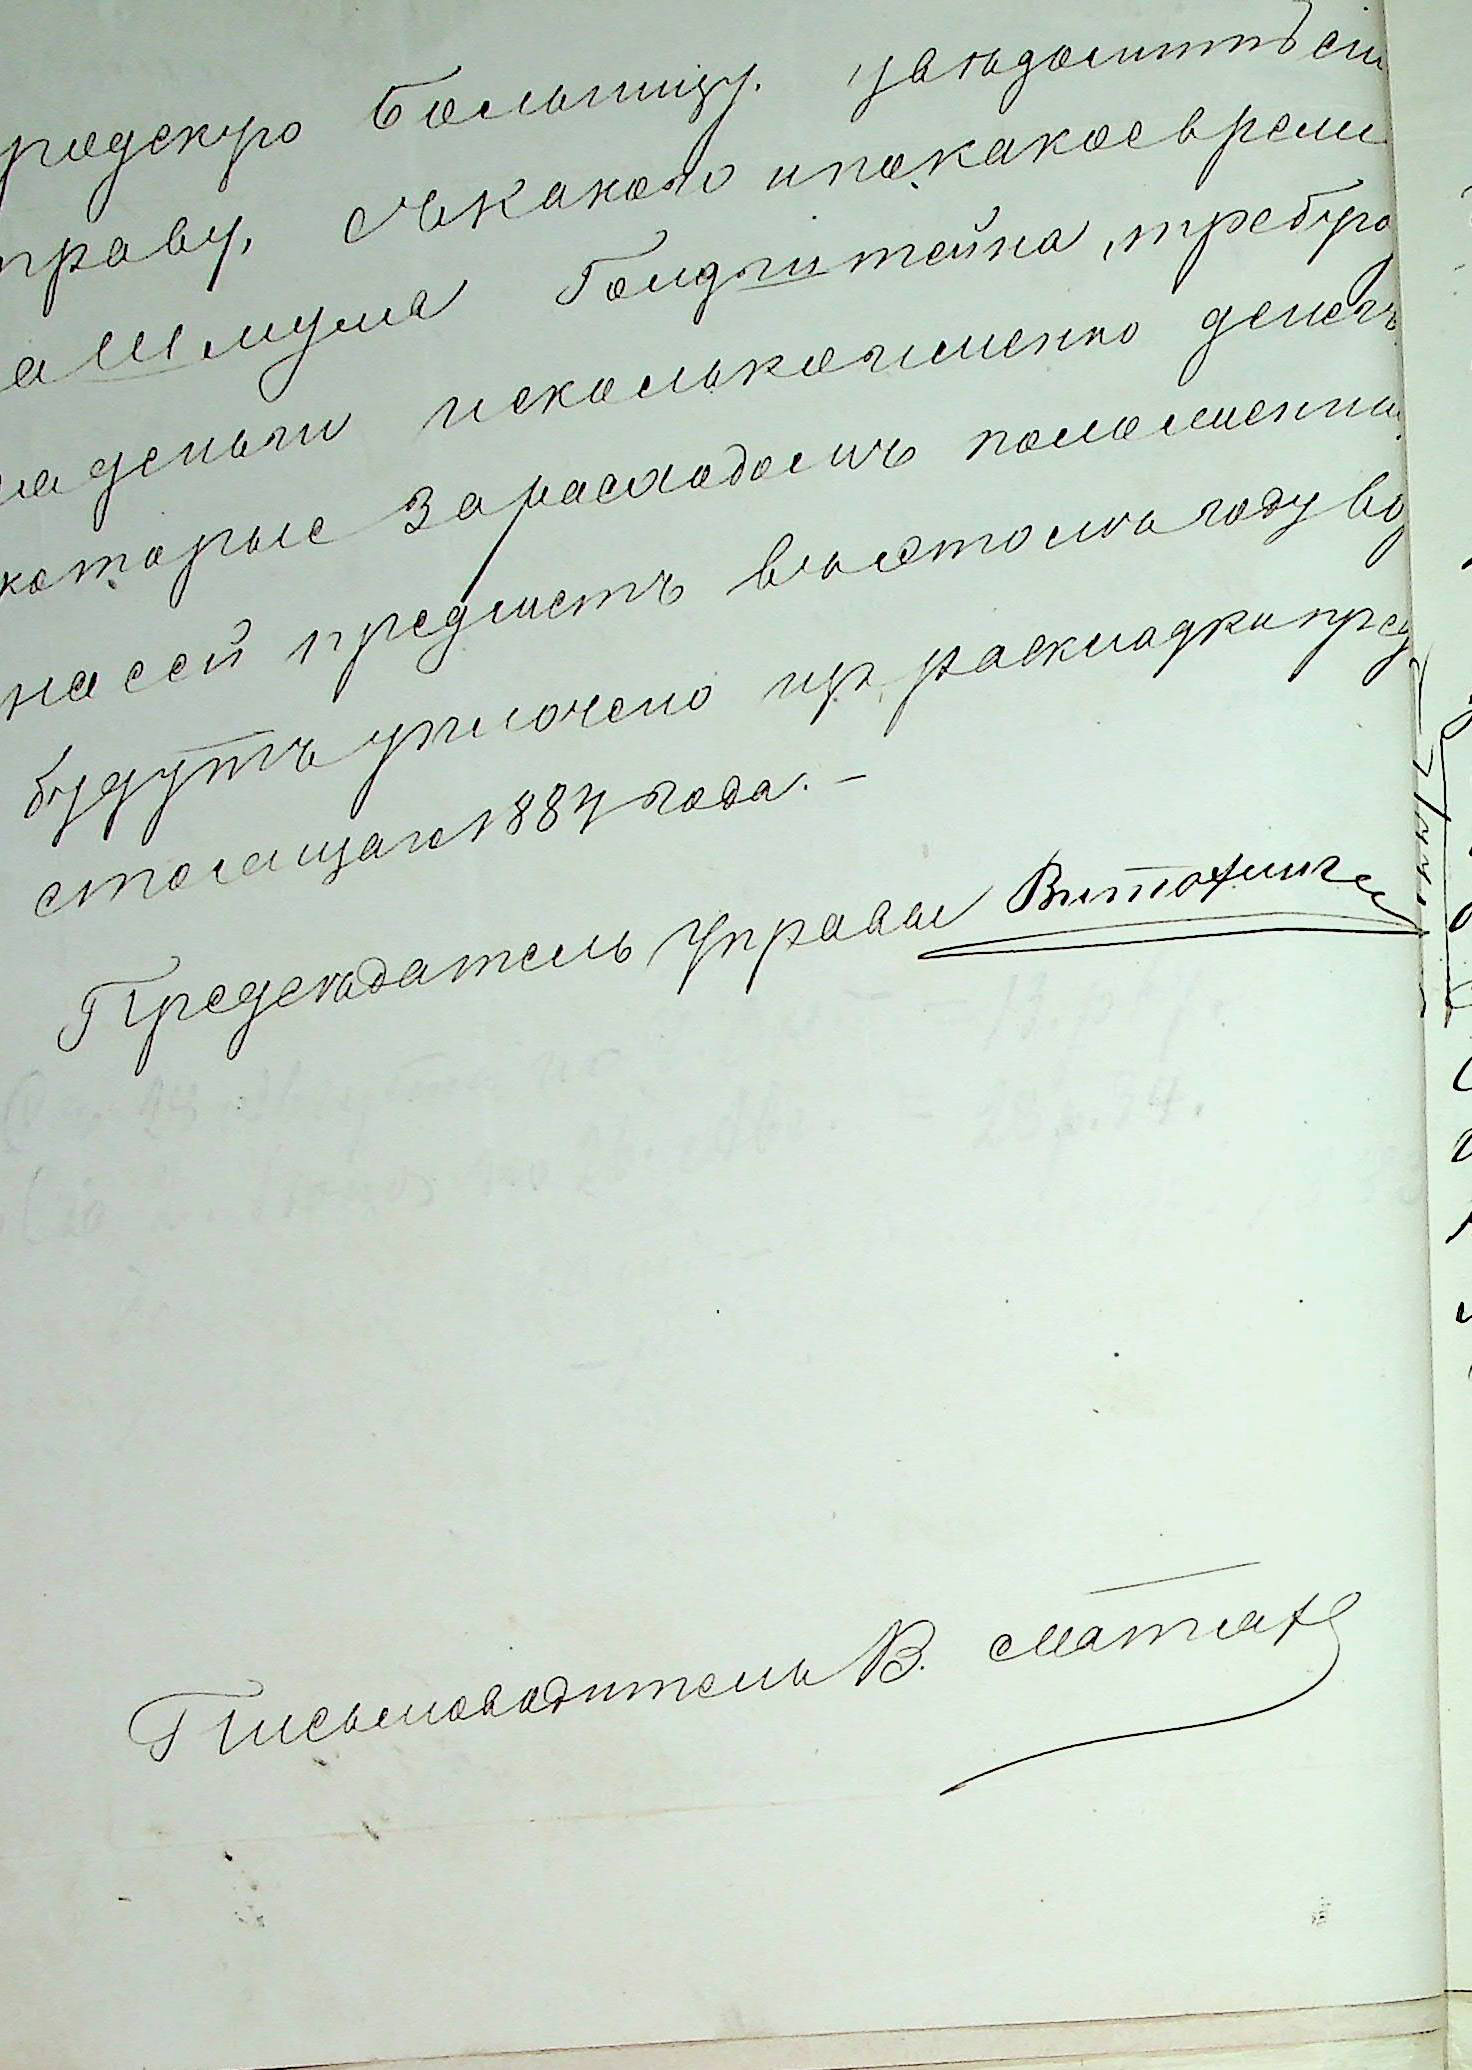 родскую больницу. увѣдомить сiю
праву, съ какого и по какое время
а Шмуля Голдштейна, требую
ся деньги и сколько именно денегъ
которые за расходомъ положенны
на сей предметъ въ этомъ году
будутъ уплочено изъ раскладки пред
стоящаго 1884 года. –
Предсѣдатель Управы
Письмоводитель В.